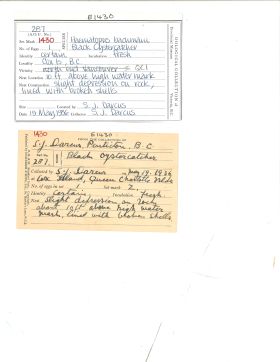 E1430
287
(A.O.U. No.)
Set Mark 1430 Haematopus bachmani
No. of Eggs 1 Black Oystercatcher
Identity certain Incubation fresh
Locality Cox Is, B.C.
Vicinity north end Vancouver = QCI
Nest Location 10 ft above high water mark
Nest Construction slight depression on rock,
lined with broken shells
Size Collected by S. J. Darcus
Date 19 May 1936 Collector of S. J. Darcus
1430 E1430
S. J. Darcus, Penticton, B.C
287. Black oystercatcher
Collected by S. J. Darcus on May 19. 1936
at Cox Island, Queen Charlotte Islds
No. of eggs in set 1. Set mark 2.
Identity Certain. Incubation fresh
Nest slight depression on rock
about 10 ft above high water
mark, lined with broken shells.